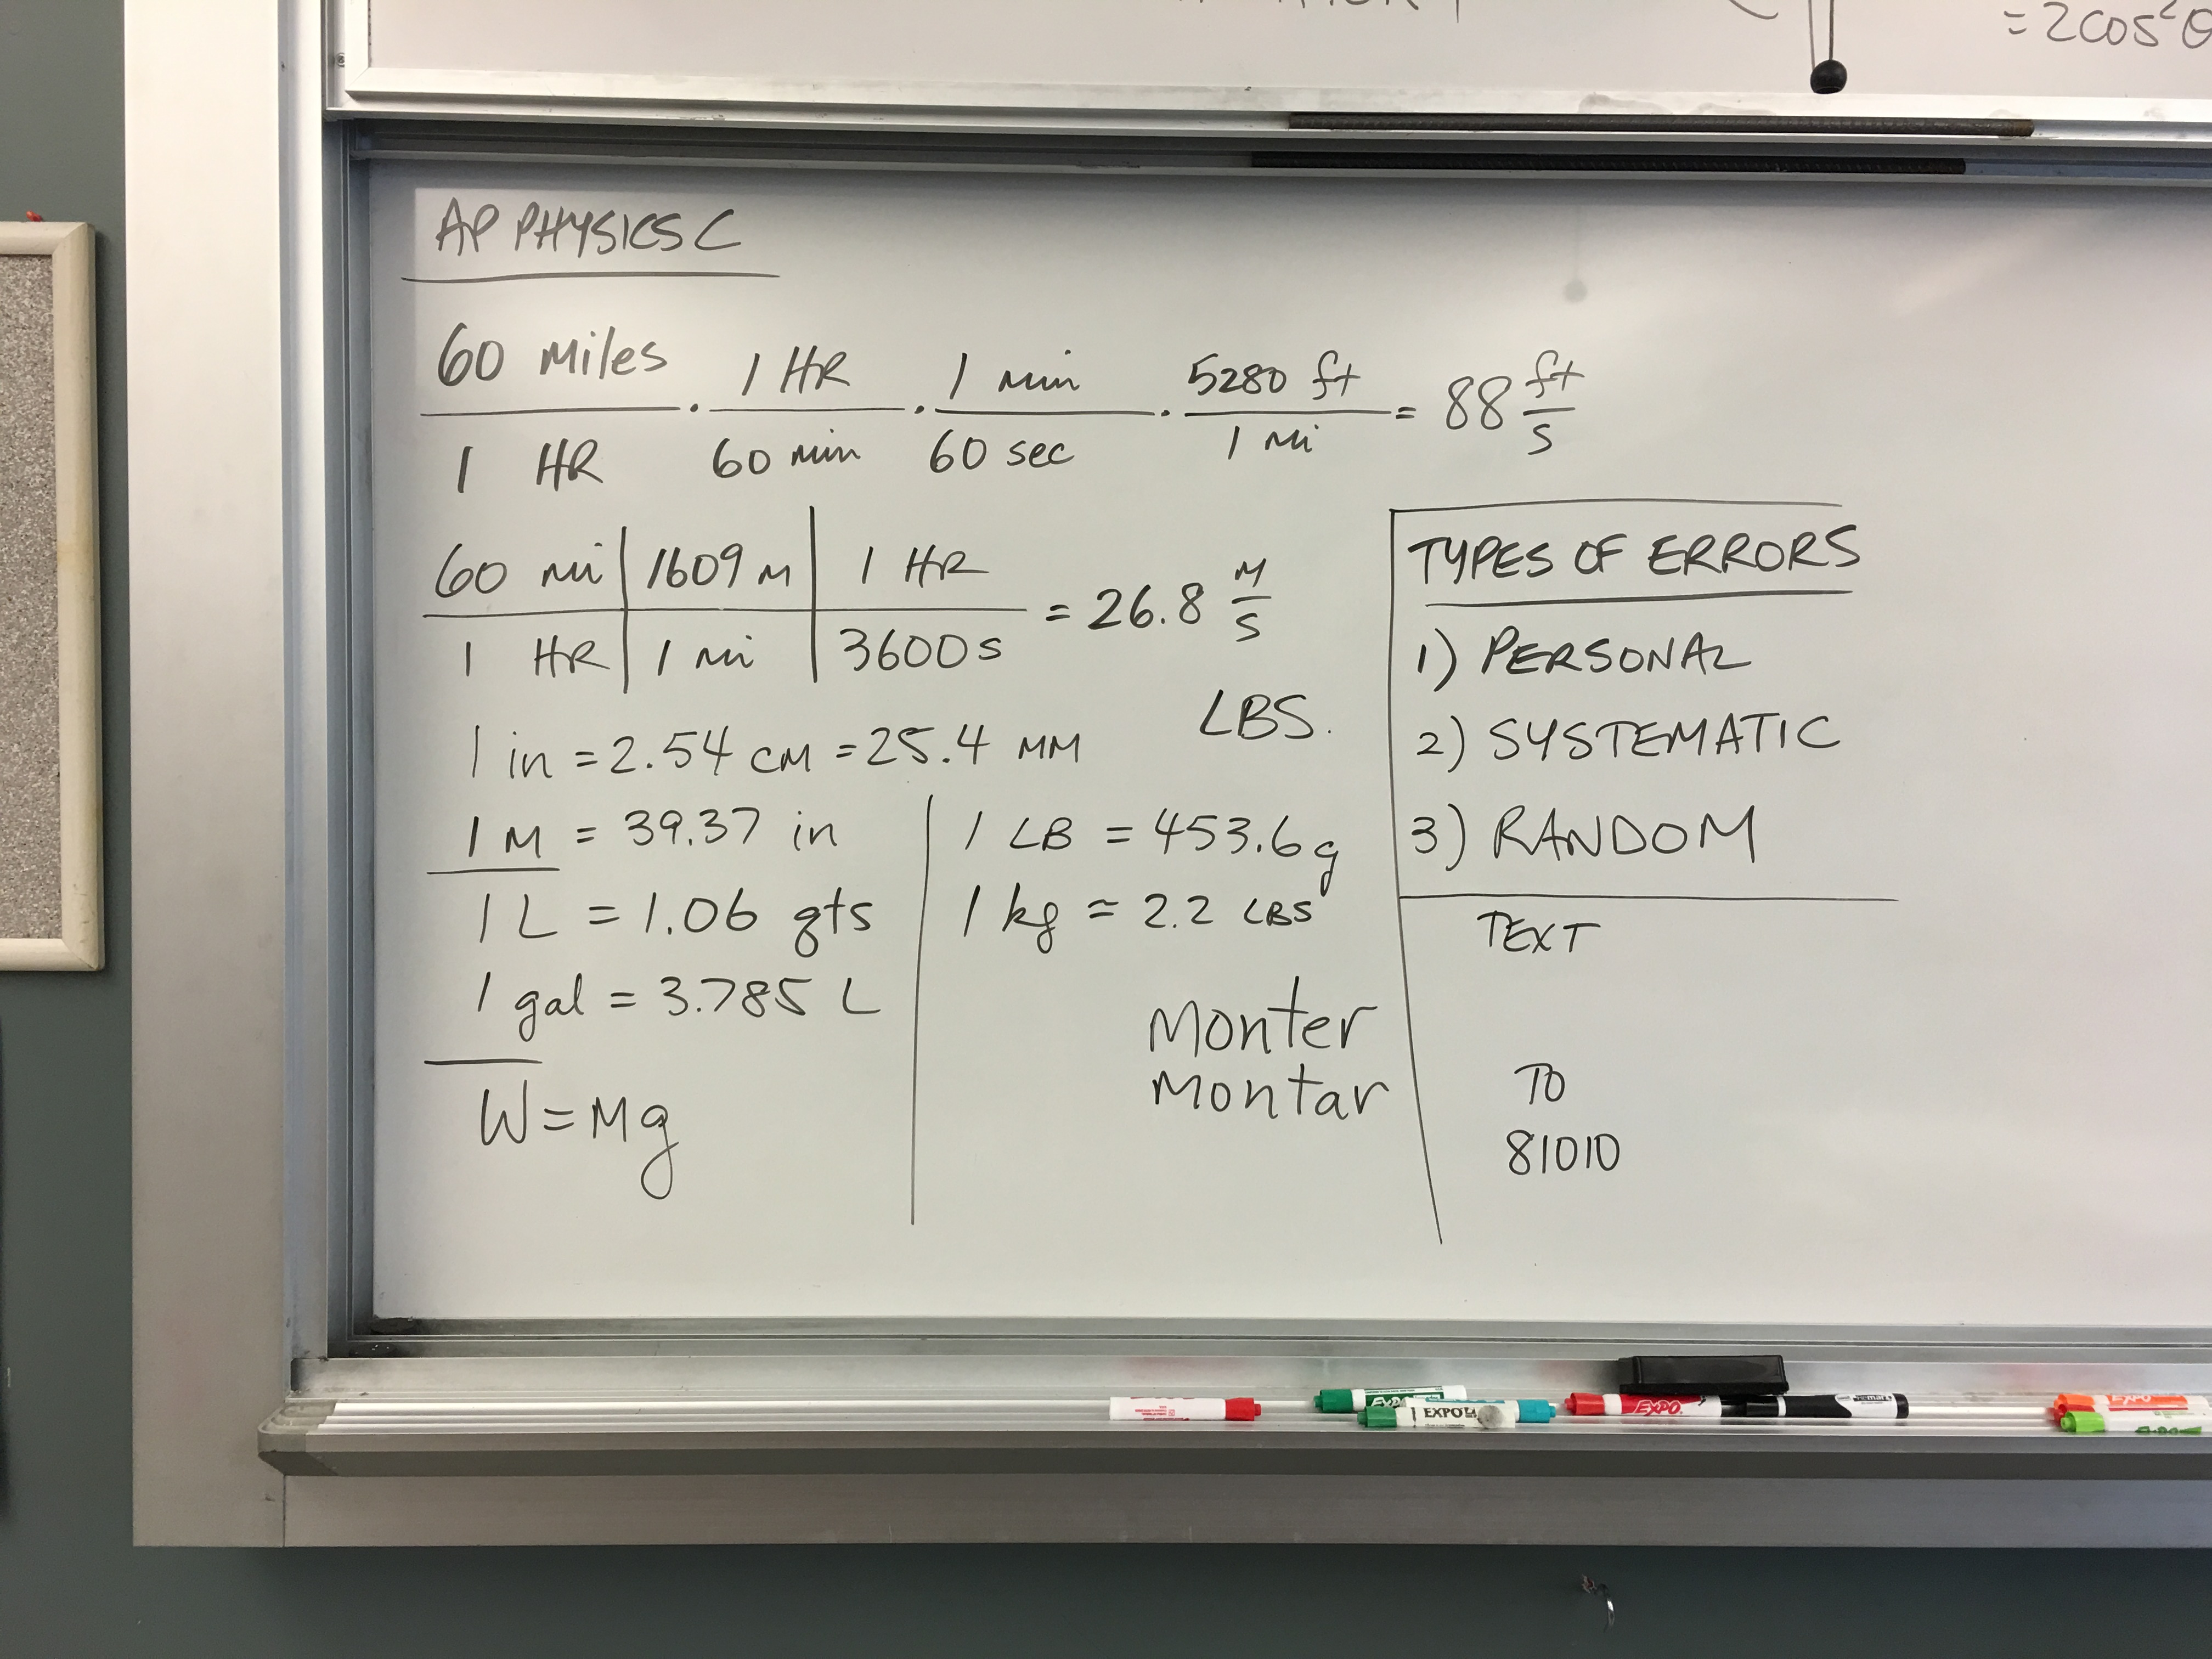 = 2cos²θ
AP PHYSICS C
60 Miles / 1 HR · 1 HR / 60 min · 1 min / 60 sec · 5280 ft / 1 Mi = 88 ft/s
60 mi / 1 HR | 1609 M / 1 Mi | 1 HR / 3600 s = 26.8 M/S
1 in = 2.54 cM = 25.4 MM
LBS.
1 M = 39.37 in
1 L = 1.06 qts
1 gal = 3.785 L
W = Mg
1 LB = 453.6 g
1 kg ≈ 2.2 LBS
Monter
Montar
TYPES OF ERRORS
1) PERSONAL
2) SYSTEMATIC
3) RANDOM
TEXT
TO
81010
EXPO
EXPO
EXPO